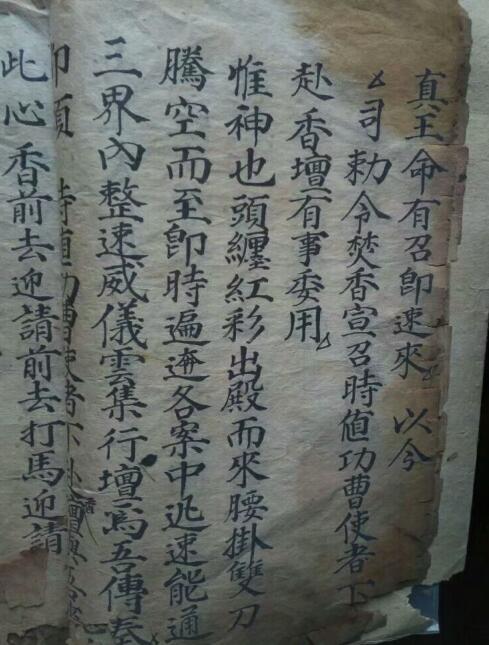 真王命有召即速來 以今
司勅令焚香宣召時值功曹使者下
赴香壇有事委用
惟神也頭纏紅彩出殿而來腰掛雙刀
騰空而至即時遍遊各案中迅速能通
三界內整速威儀雲集行壇為吾傳奏
即須 時值功曹使者下赴
此心香前去迎請前去打馬迎請